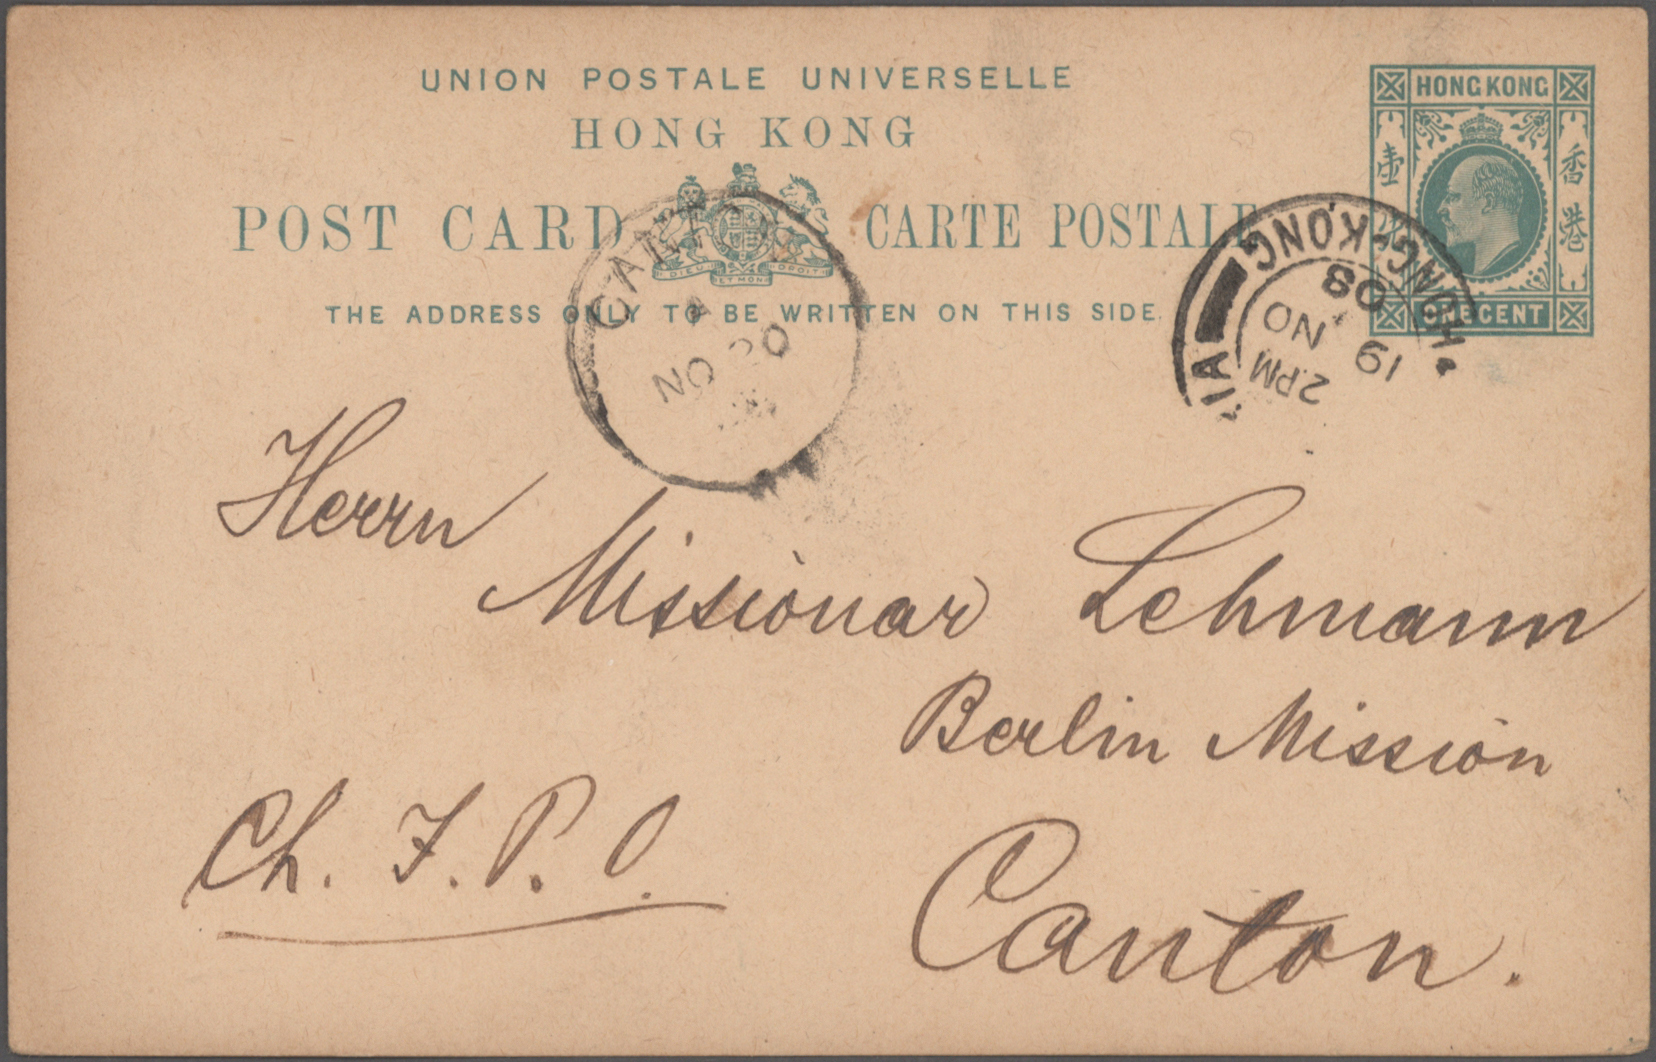 UNION POSTALE UNIVERSELLE
HONG KONG
POST CARD CARTE POSTALE
DIEU ET MON DROIT
THE ADDRESS ONLY TO BE WRITTEN ON THIS SIDE.
HONG KONG
壹
香港
ONE CENT
CANTON
A
NO 20
HONG-KONG
VIA
2 PM
19 NO
08
Herrn
Missionar Lehmann
Berlin Mission
Ch. I. P. O.
Canton.